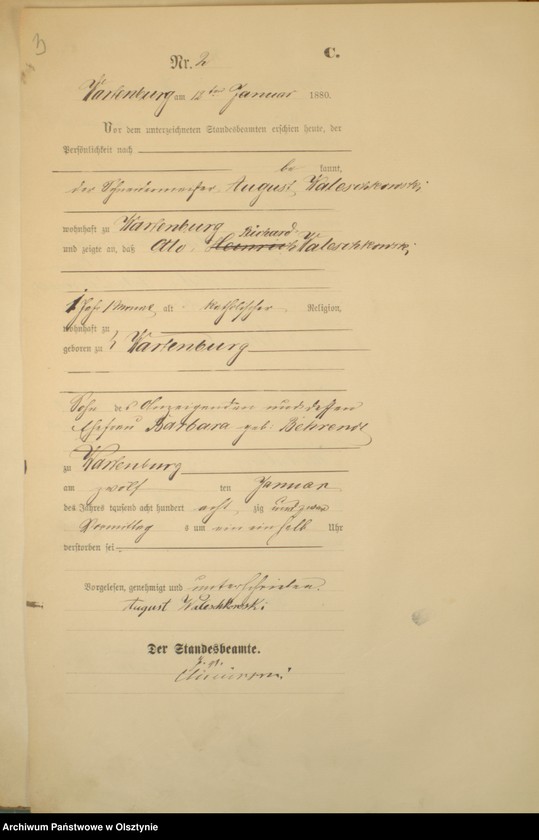 3
C.
Nr. 2
Wartenburg am 12ten Januar 1880.
Vor dem unterzeichneten Standesbeamten erschien heute, der
Persönlichkeit nach
be kannt,
der Schneidermeister August Waleschkowski
wohnhaft zu Wartenburg
Richard
und zeigte an, daß Otto Heinrich Waleschkowski
1 Jahr Monat alt katholischer Religion,
wohnhaft zu
geboren zu Wartenburg
Sohn des Anzeigenden und dessen
Ehefrau Barbara geb. Behrend
zu Wartenburg
am zwölf ten Januar
des Jahres tausend acht hundert acht zig
Vormittag s um ein ein halb Uhr
verstorben sei.
Vorgelesen, genehmigt und unterschrieben
August Waleschkowski
Der Standesbeamte.
Archiwum Państwowe w Olsztynie